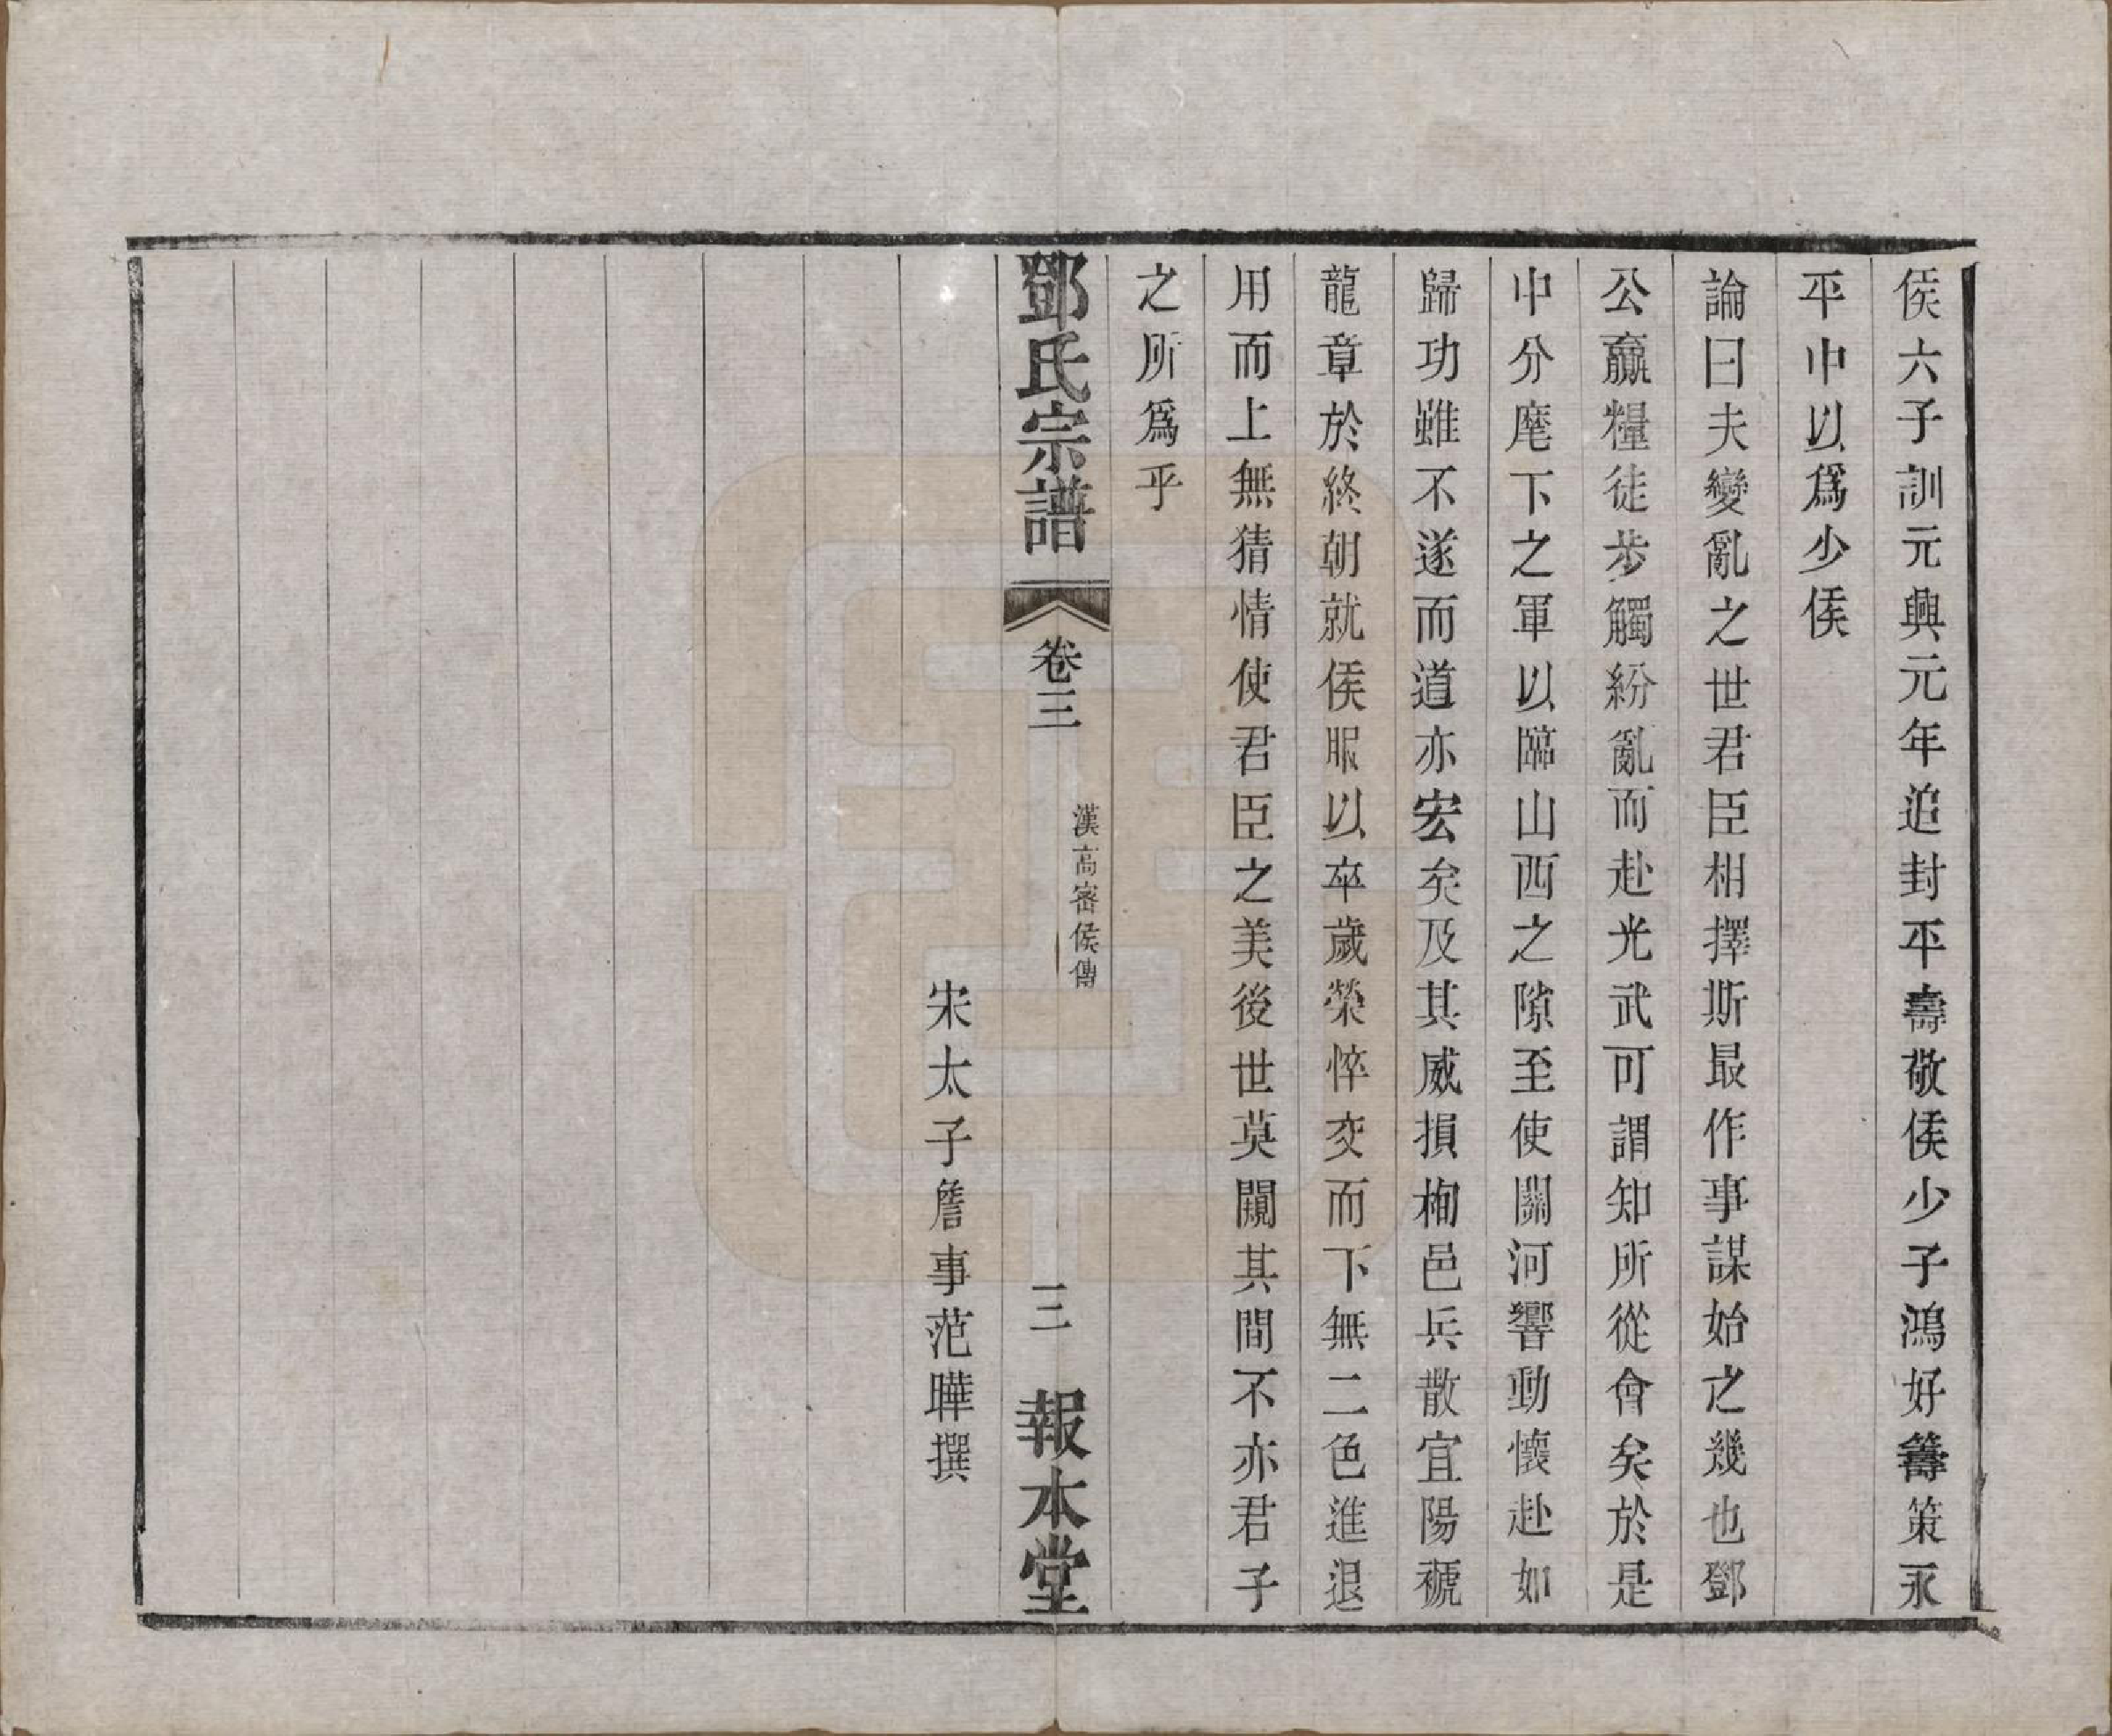 侯六子訓元興元年追封平壽敬侯少子鴻好籌策永
平中以爲少侯
論曰夫變亂之世君臣相擇斯最作事謀始之幾也鄧
公嬴糧徒步觸紛亂而赴光武可謂知所從會矣於是
中分麾下之軍以臨山西之隙至使關河響動懷赴如
歸功雖不遂而道亦宏矣及其威損栒邑兵散宜陽褫
龍章於終朝就侯服以卒歲榮悴交而下無二色進退
用而上無猜情使君臣之美後世莫闚其間不亦君子
之所爲乎
鄧氏宗譜 卷三 漢高密侯傳 三 報本堂
宋太子詹事范曄撰